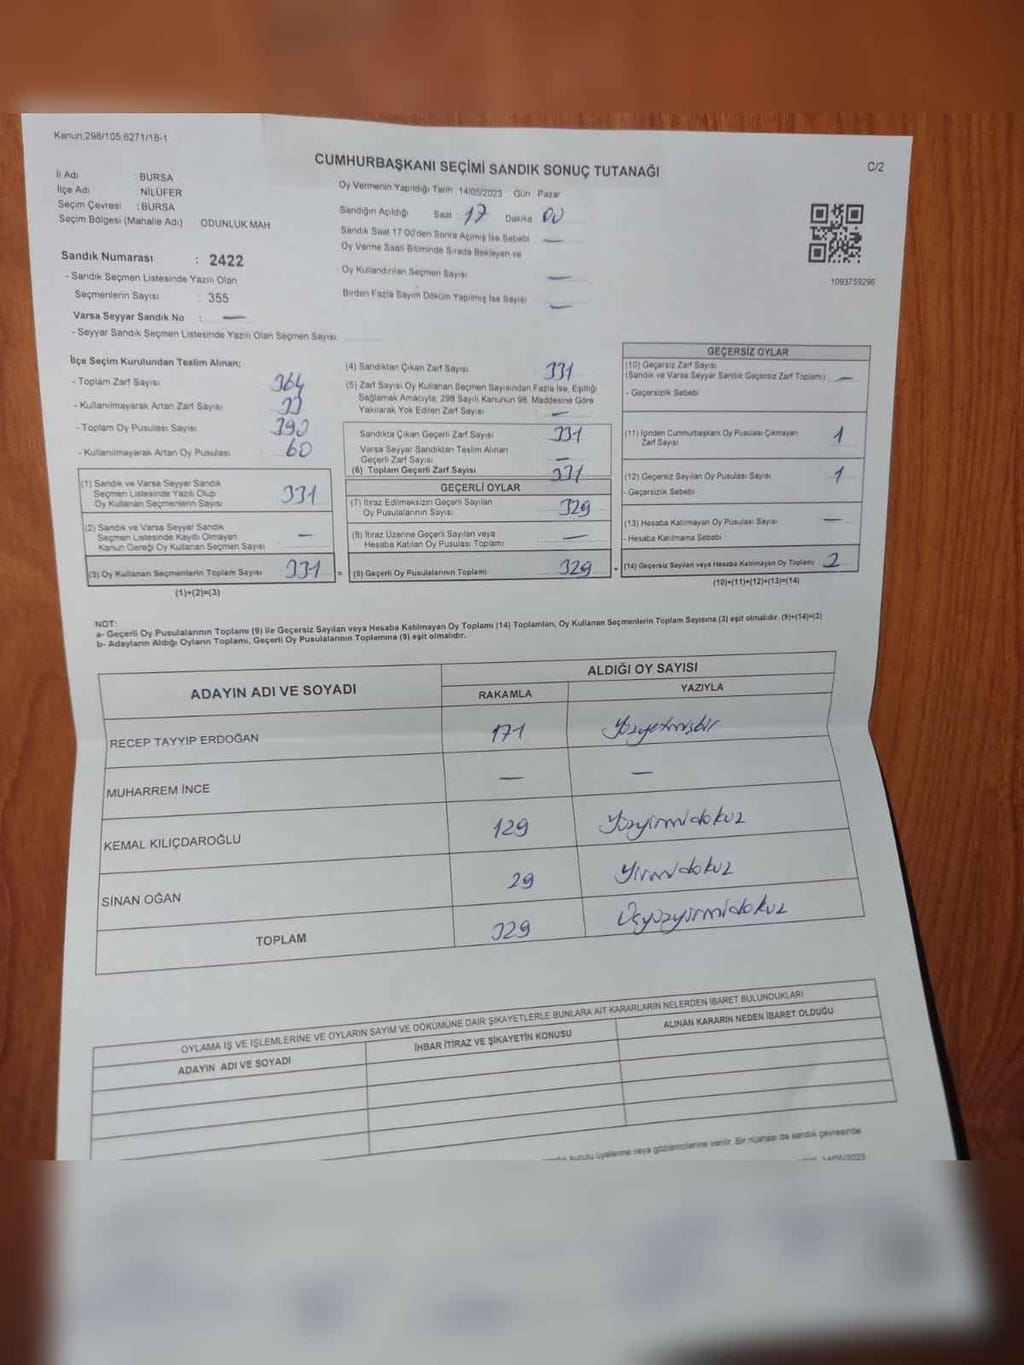 Kanun:298/105;6271/18-1
CUMHURBAŞKANI SEÇİMİ SANDIK SONUÇ TUTANAĞI
C/2
İl Adı : BURSA
İlçe Adı NİLÜFER
Seçim Çevresi : BURSA
Seçim Bölgesi (Mahalle Adı) ODUNLUK MAH
Oy Vermenin Yapıldığı Tarih :14/05/2023 Gün Pazar
Sandığın Açıldığı Saat : 17 Dakika 00
Sandık Saat 17:00'den Sonra Açılmış İse Sebebi —
Oy Verme Saati Bitiminde Sırada Bekleyen ve
Oy Kullandırılan Seçmen Sayısı —
Birden Fazla Sayım Döküm Yapılmış İse Sayısı —
1093759296
Sandık Numarası : 2422
- Sandık Seçmen Listesinde Yazılı Olan
Seçmenlerin Sayısı : 355
Varsa Seyyar Sandık No : —
- Seyyar Sandık Seçmen Listesinde Yazılı Olan Seçmen Sayısı
İlçe Seçim Kurulundan Teslim Alınan:
- Toplam Zarf Sayısı 364
- Kullanılmayarak Artan Zarf Sayısı 33
- Toplam Oy Pusulası Sayısı 390
- Kullanılmayarak Artan Oy Pusulası 60
(1) Sandık ve Varsa Seyyar Sandık
Seçmen Listesinde Yazılı Olup
Oy Kullanan Seçmenlerin Sayısı 331
(2) Sandık ve Varsa Seyyar Sandık
Seçmen Listesinde Kayıtlı Olmayan
Kanun Gereği Oy Kullanan Seçmen Sayısı —
(3) Oy Kullanan Seçmenlerin Toplam Sayısı 331 =
(1)+(2)=(3)
(4) Sandıktan Çıkan Zarf Sayısı 331
(5) Zarf Sayısı Oy Kullanan Seçmen Sayısından Fazla İse, Eşitliği
Sağlamak Amacıyla, 298 Sayılı Kanunun 98. Maddesine Göre
Yakılarak Yok Edilen Zarf Sayısı —
Sandıkta Çıkan Geçerli Zarf Sayısı 331
Varsa Seyyar Sandıktan Teslim Alınan
Geçerli Zarf Sayısı —
(6) Toplam Geçerli Zarf Sayısı 331
GEÇERLİ OYLAR
(7) İtiraz Edilmeksizin Geçerli Sayılan
Oy Pusulalarının Sayısı 329
(8) İtiraz Üzerine Geçerli Sayılan veya
Hesaba Katılan Oy Pusulası Toplamı —
(9) Geçerli Oy Pusulalarının Toplamı 329 +
GEÇERSİZ OYLAR
(10) Geçersiz Zarf Sayısı
(Sandık ve Varsa Seyyar Sandık Geçersiz Zarf Toplamı) —
- Geçersizlik Sebebi
(11) İçinden Cumhurbaşkanı Oy Pusulası Çıkmayan
Zarf Sayısı 1
(12) Geçersiz Sayılan Oy Pusulası Sayısı 1
- Geçersizlik Sebebi
(13) Hesaba Katılmayan Oy Pusulası Sayısı —
- Hesaba Katılmama Sebebi
(14) Geçersiz Sayılan veya Hesaba Katılmayan Oy Toplamı 2
(10)+(11)+(12)+(13)=(14)
NOT:
a- Geçerli Oy Pusulalarının Toplamı (9) ile Geçersiz Sayılan veya Hesaba Katılmayan Oy Toplamı (14) Toplamları, Oy Kullanan Seçmenlerin Toplam Sayısına (3) eşit olmalıdır. (9)+(14)=(3)
b- Adayların Aldığı Oyların Toplamı, Geçerli Oy Pusulalarının Toplamına (9) eşit olmalıdır.
ADAYIN ADI VE SOYADI
ALDIĞI OY SAYISI
RAKAMLA YAZIYLA
RECEP TAYYİP ERDOĞAN 171 Yüzyetmişbir
MUHARREM İNCE — —
KEMAL KILIÇDAROĞLU 129 Yüzyirmidokuz
SİNAN OĞAN 29 Yirmidokuz
TOPLAM 329 Üçyüzyirmidokuz
OYLAMA İŞ VE İŞLEMLERİNE VE OYLARIN SAYIM VE DÖKÜMÜNE DAİR ŞİKAYETLERLE BUNLARA AİT KARARLARIN NELERDEN İBARET BULUNDUKLARI
ADAYIN ADI VE SOYADI İHBAR İTİRAZ VE ŞİKAYETİN KONUSU ALINAN KARARIN NEDEN İBARET OLDUĞU
kurulu üyelerine veya gözlemcilerine verilir. Bir nüshası da sandık çevresinde
14/05/2023